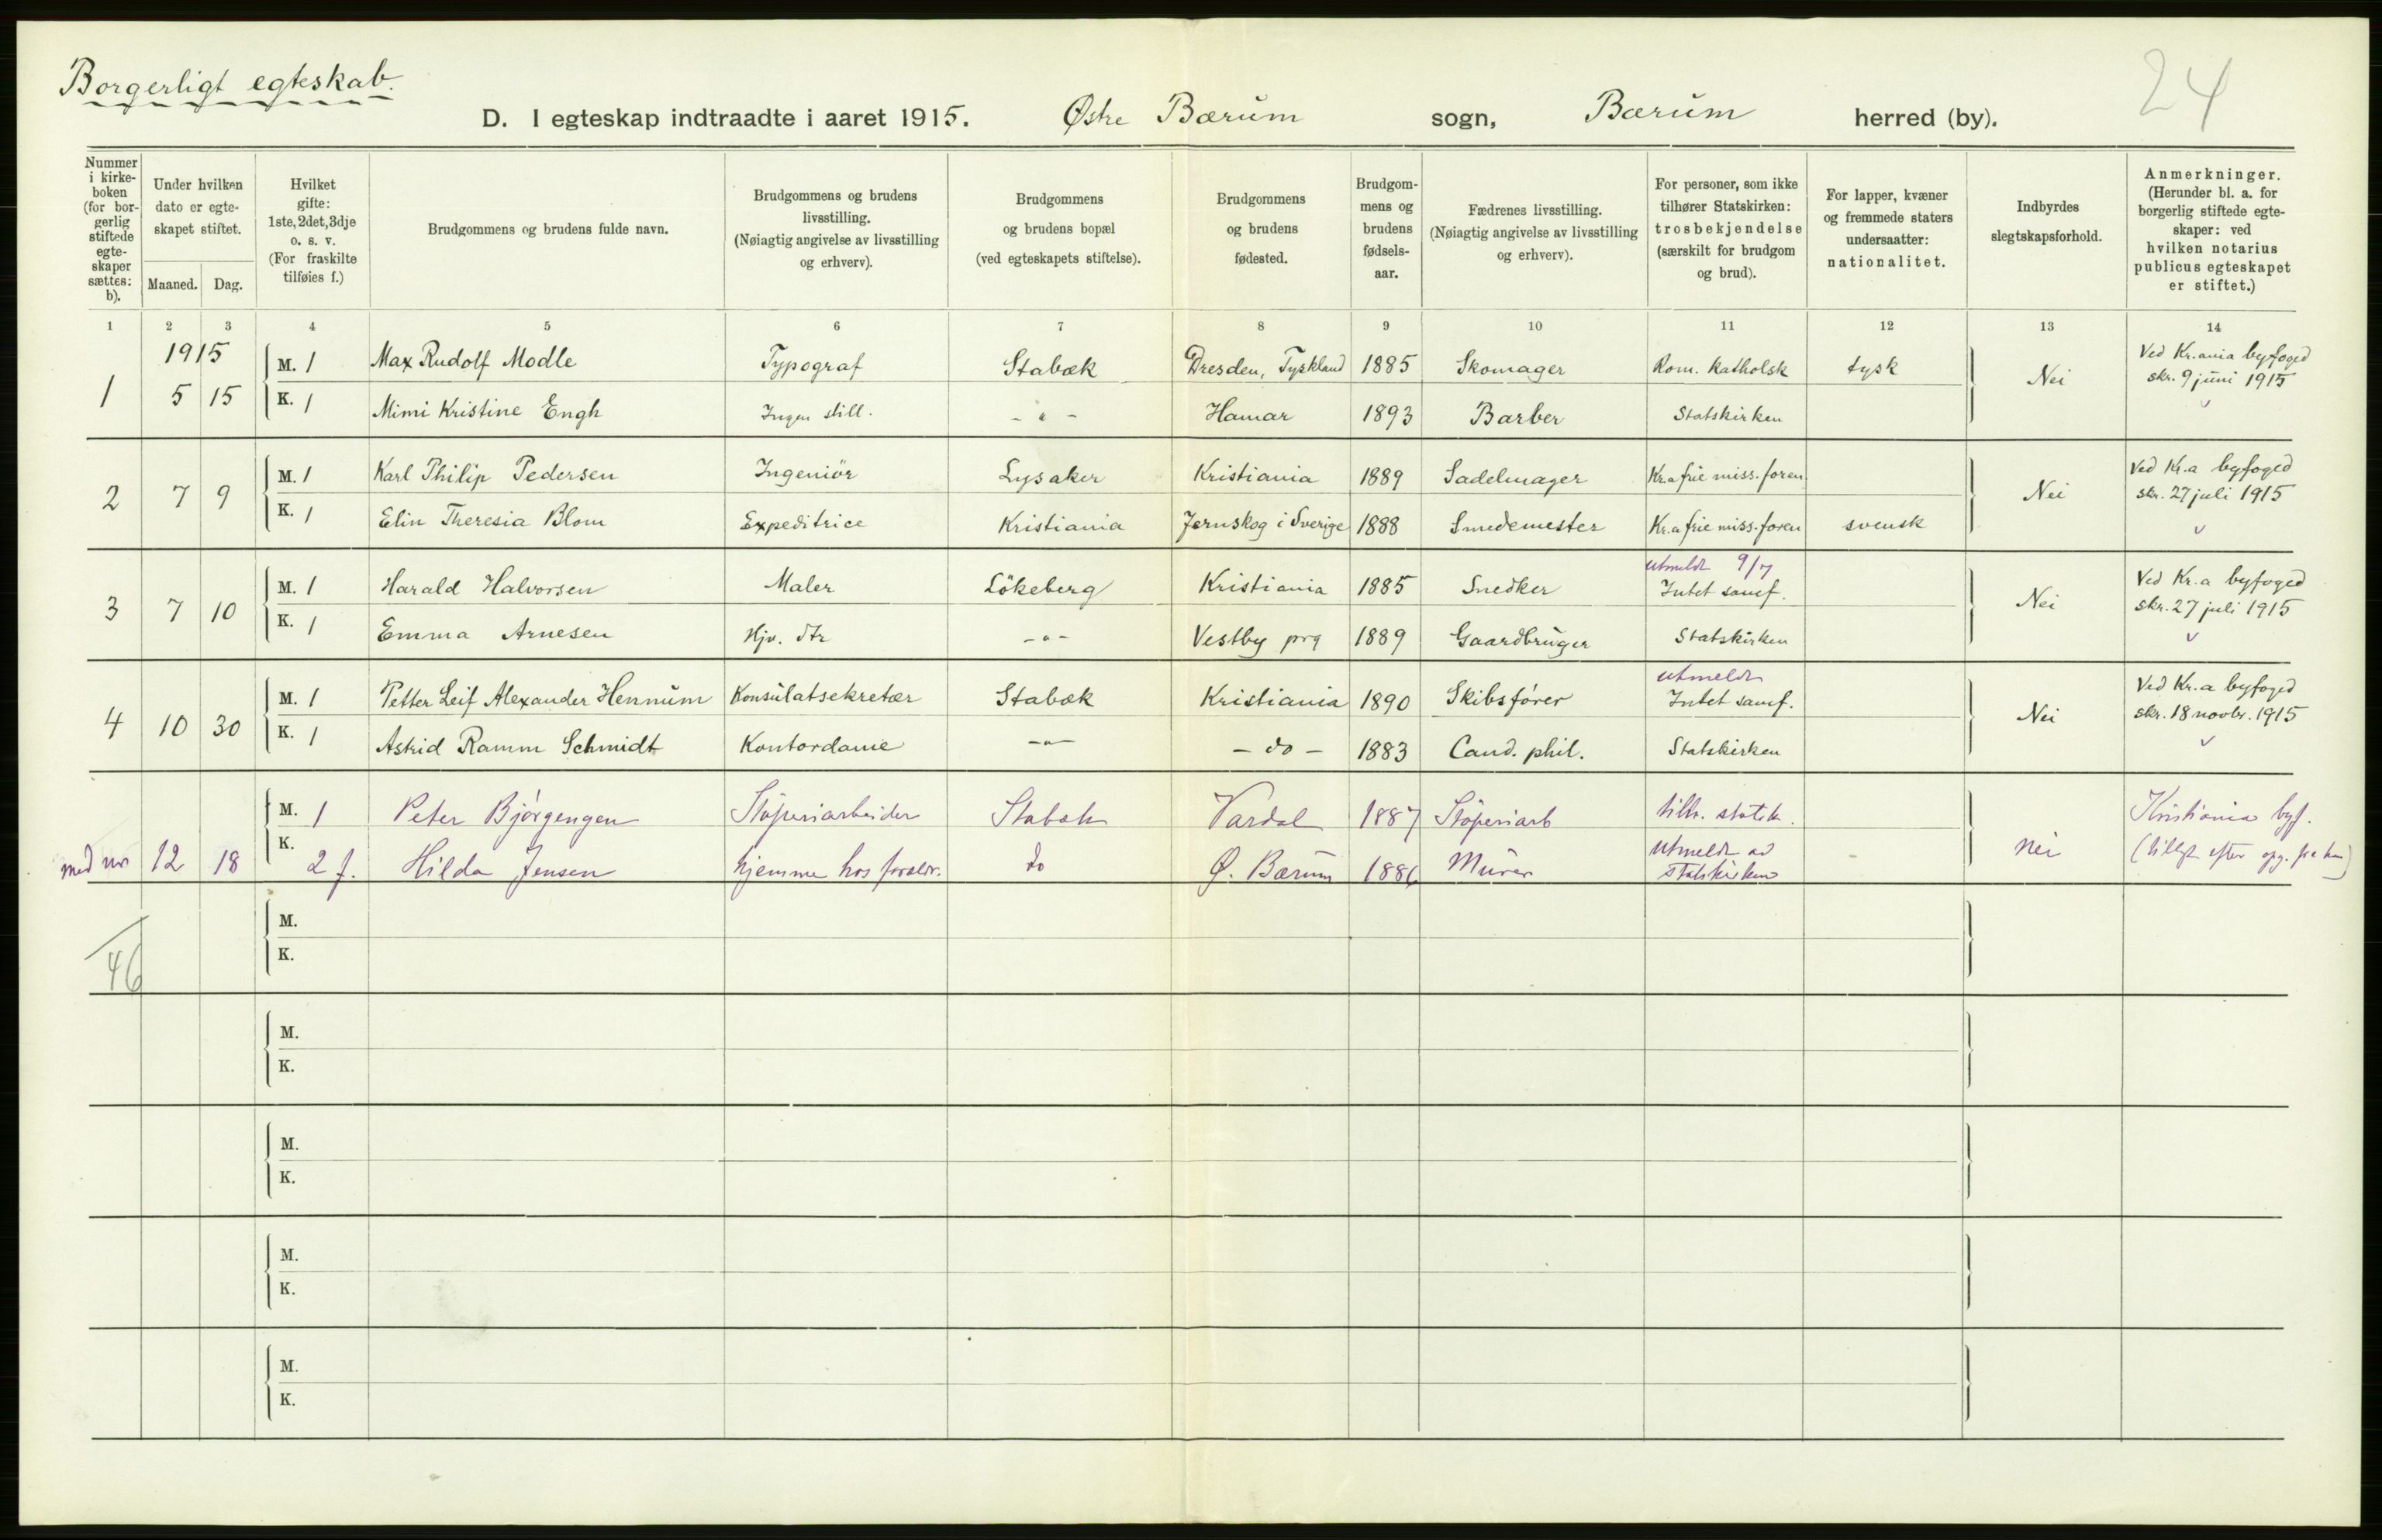 Borgerligt egteskab.
24
D. I egteskap indtraadte i aaret 1915. Østre Bærum sogn, Bærum herred (by).
Nummer i kirke-boken (for bor-gerlig stiftede egte-skaper sættes: b).
Under hvilken dato er egte-skapet stiftet.
Maaned. Dag.
Hvilket gifte: 1ste, 2det, 3dje o. s. v. (For fraskilte tilføies f.)
Brudgommens og brudens fulde navn.
Brudgommens og brudens livsstilling. (Nøiagtig angivelse av livsstilling og erhverv).
Brudgommens og brudens bopæl (ved egteskapets stiftelse).
Brudgommens og brudens fødested.
Brudgom-mens og brudens fødsels-aar.
Fædrenes livsstilling. (Nøiagtig angivelse av livsstilling og erhverv).
For personer, som ikke tilhører Statskirken: trosbekjendelse (særskilt for brudgom og brud).
For lapper, kvæner og fremmede staters undersaatter: nationalitet.
Indbyrdes slegtskapsforhold.
Anmerkninger. (Herunder bl. a. for borgerlig stiftede egte-skaper: ved hvilken notarius publicus egteskapet er stiftet.)
1 2 3 4 5 6 7 8 9 10 11 12 13 14
1915
1 5 15 M. 1 Max Rudolf Modle Typograf Stabæk Dresden, Tyskland 1885 Skomager Rom. katholsk tysk Nei Ved Kr.ania byfoged skr. 9 juni 1915
K. 1 Mimi Kristine Engh Ingen still. - " - Hamar 1893 Barber Statskirken
2 7 9 M. 1 Karl Philip Pedersen Ingeniör Lysaker Kristiania 1889 Sadelmager Kr.a frie miss.foren Nei Ved Kr.a byfoged skr. 27 juli 1915
K. 1 Elin Theresia Blom Expeditrice Kristiania Jernskog i Sverige 1888 Smedemester Kr.a frie miss.foren svensk
3 7 10 M. 1 Harald Halvorsen Maler Lökeberg Kristiania 1885 Snedker utmeldt 9/7 Intet samf. Nei Ved Kr.a byfoged skr. 27 juli 1915
K. 1 Emma Arnesen Hjv. dtr - " - Vestby prg 1889 Gaardbruger Statskirken
4 10 30 M. 1 Petter Leif Alexander Hennum Konsulatsekretær Stabæk Kristiania 1890 Skibsfører utmeldt Intet samf. Nei Ved Kr.a byfoged skr. 18 novbr. 1915
K. 1 Astrid Ramm Schmidt Kontordame - " - - do - 1883 Cand. phil. Statskirken
M. 1 Peter Bjørgengen Støperiarbeider Stabæk Vardal 1887 Støperiarb tilh. statsk. Kristiania byf.
12 18 K. 2 f. Hilda Jensen hjemme hos forældr. do Ø. Bærum 1886 Murer utmeldt av statskirken - nei (tillagt efter opg. fra ham)
46
M.
K.
M.
K.
M.
K.
M.
K.
M.
K.